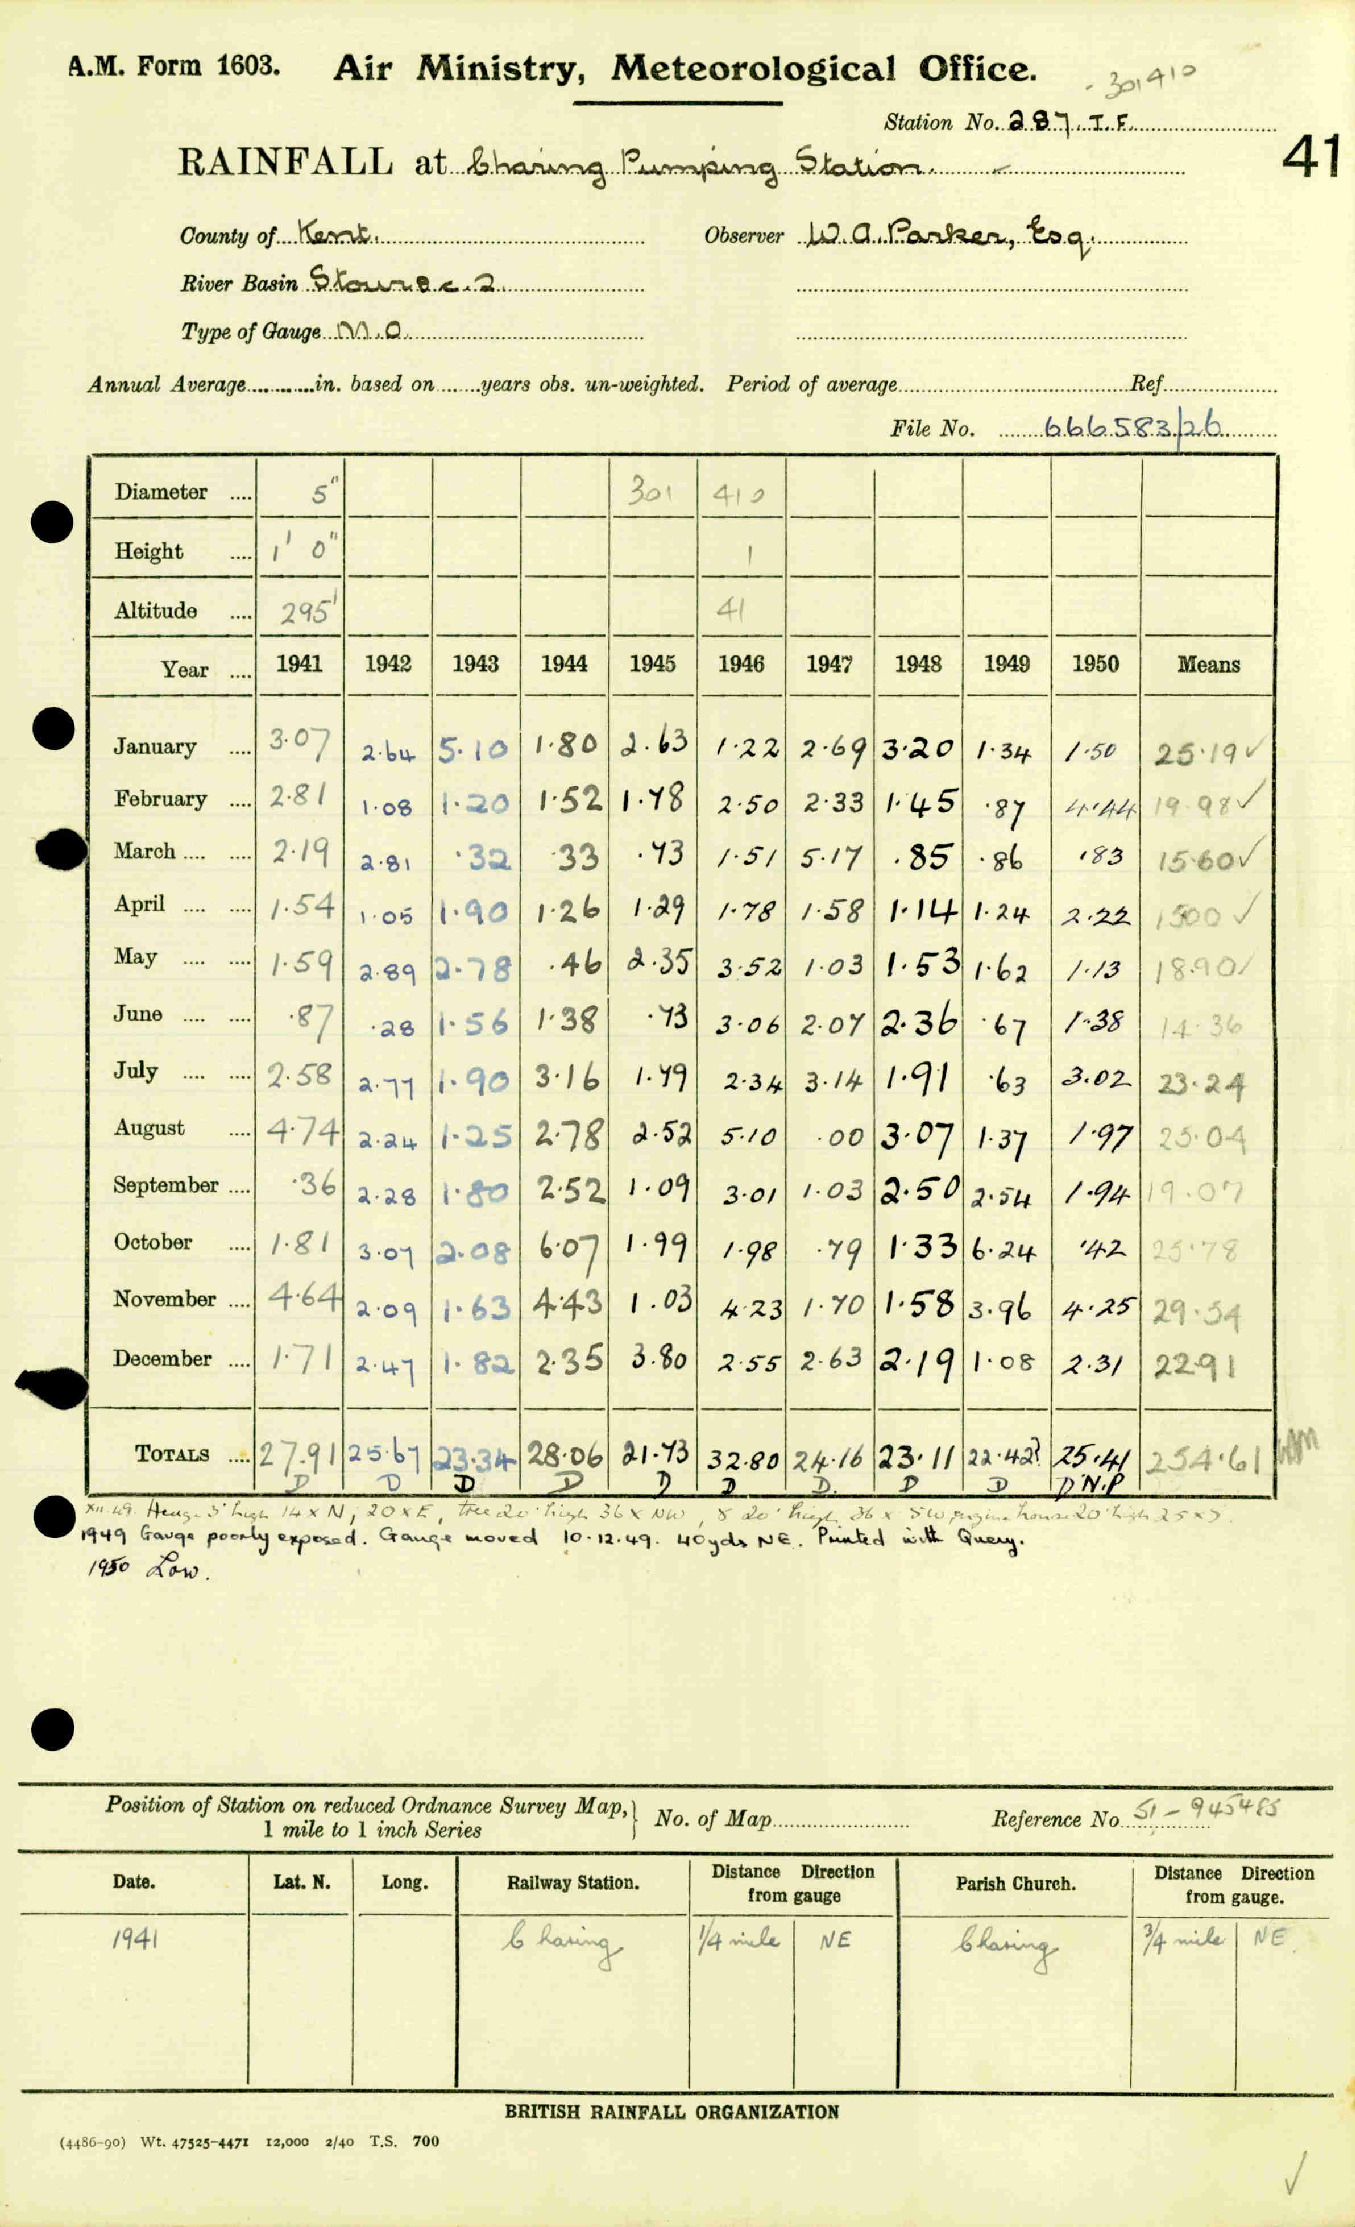 A.M. Form 1603. Air Ministry, Meteorological Office.
301410
Station No. 287. I. F.
RAINFALL at Charing Pumping Station.
41
County of Kent. Observer W. A. Parker, Esq.
River Basin Stour &c. 2
Type of Gauge M.O.
Annual Average............in. based on.......years obs. un-weighted. Period of average.......Ref.......
File No. 666583/26
Diameter .... 5" 301 410
Height .... 1' 0" 1
Altitude .... 295' 41
Year .... 1941 1942 1943 1944 1945 1946 1947 1948 1949 1950 Means
January .... 3.07 2.64 5.10 1.80 2.63 1.22 2.69 3.20 1.34 1.50 25.19 ✓
February .... 2.81 1.08 1.20 1.52 1.78 2.50 2.33 1.45 .87 4.44 19.98 ✓
March .... .... 2.19 2.81 .32 .33 .73 1.51 5.17 .85 .86 .83 15.60 ✓
April .... .... 1.54 1.05 1.90 1.26 1.29 1.78 1.58 1.14 1.24 2.22 1500 ✓
May .... .... 1.59 2.89 2.78 .46 2.35 3.52 1.03 1.53 1.62 1.13 18.90 /
June .... .... .87 .28 1.56 1.38 .73 3.06 2.07 2.36 .67 1.38 14.36
July .... .... 2.58 2.77 1.90 3.16 1.79 2.34 3.14 1.91 .63 3.02 23.24
August .... 4.74 2.24 1.25 2.78 2.52 5.10 .00 3.07 1.37 1.97 25.04
September .... .36 2.28 1.80 2.52 1.09 3.01 1.03 2.50 2.54 1.94 19.07
October .... 1.81 3.07 2.08 6.07 1.99 1.98 .79 1.33 6.24 .42 25.78
November .... 4.64 2.09 1.63 4.43 1.03 4.23 1.70 1.58 3.96 4.25 29.54
December .... 1.71 2.47 1.82 2.35 3.80 2.55 2.63 2.19 1.08 2.31 2291
TOTALS .... 27.91 25.67 23.34 28.06 21.73 32.80 24.16 23.11 22.42? 25.41 254.61
D D D D D D D. D D D N.P
XII.49. Hedge 5' high 14 x N, 20 x E, tree 20' high 36 x NW, 8 20' high 36 x SW engine house 20' high 25 x S.
1949 Gauge poorly exposed. Gauge moved 10.12.49. 40yds NE. Printed with Query.
1950 Low.
Position of Station on reduced Ordnance Survey Map, 1 mile to 1 inch Series } No. of Map........ Reference No. 51 - 945485
Date. Lat. N. Long. Railway Station. Distance Direction from gauge Parish Church. Distance Direction from gauge.
1941 Charing 1/4 mile NE Charing 3/4 mile NE.
BRITISH RAINFALL ORGANIZATION
(4486-90) Wt. 47525-4471 12,000 2/40 T.S. 700
✓